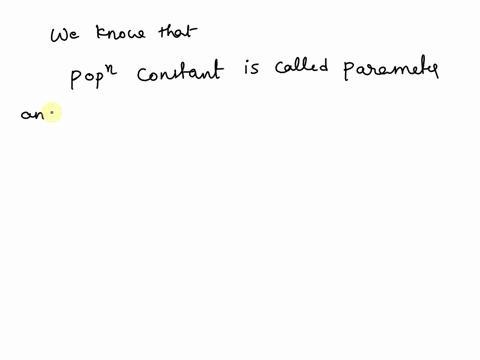 We know that
popⁿ constant is called parameter
an